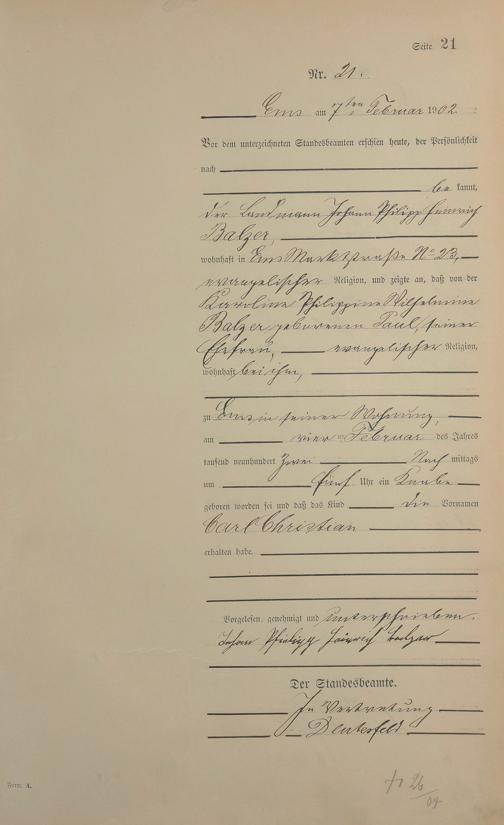 Seite 21
Nr. 21.
Ems am 7ten Februar 1902 :
Vor dem unterzeichneten Standesbeamten erschien heute, der Persönlichkeit
nach
be kannt,
der Landmann Johann Philipp Heinrich
Balzer,
wohnhaft in Ems Marktstraße No 23,
evangelischer Religion, und zeigte an, daß von der
Karoline Philippine Wilhelmine
Balzer, geborenen Paul, seiner
Ehefrau, evangelischer Religion,
wohnhaft bei ihm,
zu Ems in seiner Wohnung,
am vier Februar des Jahres
tausend neunhundert zwei Nach mittags
um fünf Uhr ein Knabe
geboren worden sei und daß das Kind die Vornamen
Carl Christian
erhalten habe.
Vorgelesen, genehmigt und unterschrieben.
Johan Philipp Heinrich Balzer
Der Standesbeamte.
In Vertretung
Form. A.